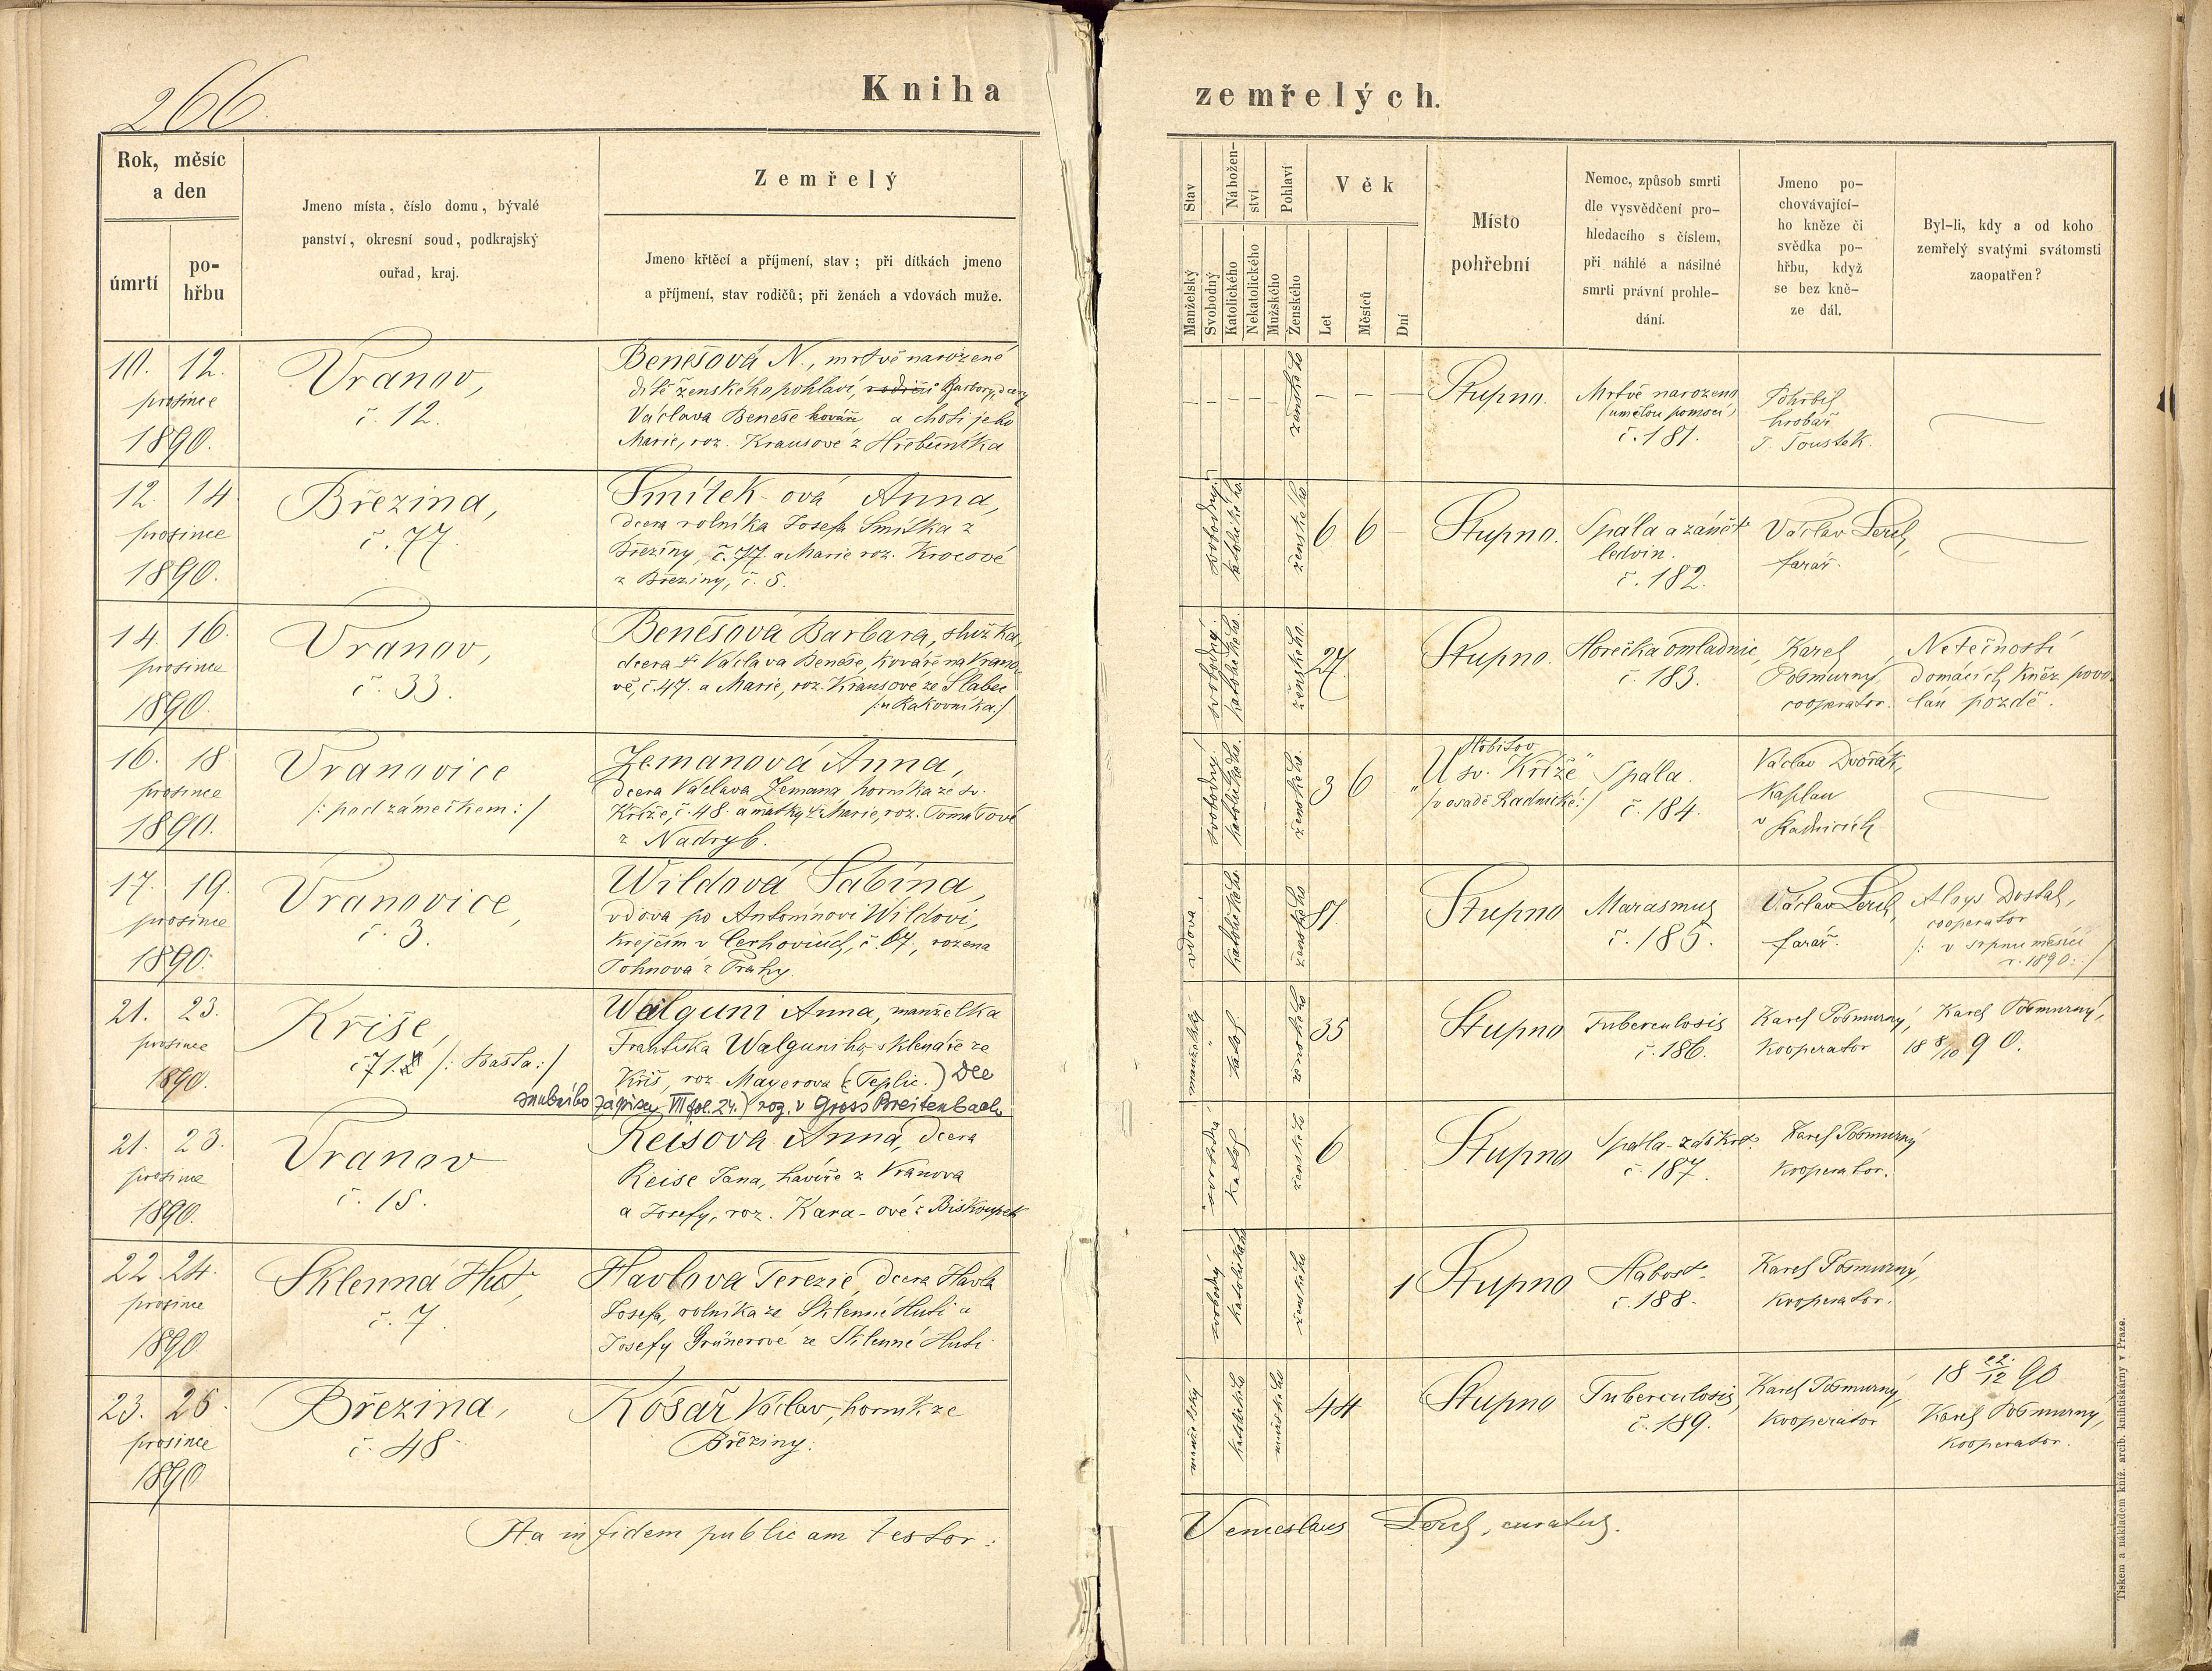 266.
Kniha
zemřelých.
Rok, měsíc
a den
úmrtí
po-
hřbu
Jmeno místa, číslo domu, bývalé
panství, okresní soud, podkrajský
ouřad, kraj.
Zemřelý
Jmeno křtěcí a příjmení, stav; při dítkách jmeno
a příjmení, stav rodičů; při ženách a vdovách muže.
Stav
Manželský
Svobodný
Nábožen-
ství
Katolického
Nekatolického
Pohlaví
Mužského
Ženského
Věk
Let
Měsíců
Dní
Místo
pohřební
Nemoc, způsob smrti
dle vysvědčení pro-
hledacího s číslem,
při náhlé a násilné
smrti právní prohle-
dání.
Jmeno po-
chovávající-
ho kněze či
svědka po-
hřbu, když
se bez kně-
ze dál.
Byl-li, kdy a od koho
zemřelý svatými svátomsti
zaopatřen?
10. 12.
prosince
1890.
Vranov,
č. 12.
Benešová N., mrtvě narozené
dítě ženského pohlaví, rodičů Barbory, dcery
Václava Beneše kováře a choti jeho
Marie, roz. Krausové z Hřebečníka
ženského
Stupno.
Mrtvě narozeno
(umělou pomocí)
č. 181.
Pohřbil
hrobař
J. Toustek
12 14
prosince
1890.
Březina,
č. 77.
Smítek-ová Anna,
dcera rolníka Josefa Smítka z
Březiny, č. 77. a Marie roz. Krocové
z Březiny, č. 5.
svobodný
katolického
ženského
6 6 –
Stupno.
Spála a zánět
ledvin.
č. 182.
Václav Lerch,
farář.
14. 16.
prosince
1890.
Vranov,
č. 33.
Benešová Barbara, služka,
dcera † Václava Beneše, kováře na Vrano-
vě, č. 47. a Marie, roz. Krausové ze Slabec
/:u Rakovníka:/
svobodný.
katolického.
ženského.
27.
Stupno.
Horečka omladnic,
č. 183.
Karel
Pošmurný,
cooperator.
Netečností
domácích kněz povo-
lán pozdě.
16. 18
prosince
1890.
Vranovice
/: pod zámečkem :/
Zemanová Anna,
dcera Václava Zemana horníka ze sv.
Kříže, č. 48. a matky † Marie, roz. Tomášové
z Nadryb.
svobodný.
katolického.
ženského.
3 6
Hřbitov
"U sv. Kříže"
/v osadě Radnické:/
Spála.
č. 184.
Václav Dvořák,
Kaplan
v Radnicích
17. 19.
prosince
1890.
Vranovice,
č. 3.
Wildová Sabina,
vdova po Antonínovi Wildovi,
krejčím v Cerhovicích, č. 67, rozená
Tohnová z Prahy.
vdova
katolického.
ženského
81
Stupno
Marasmus
č. 185.
Václav Lerch,
farář.
Aloys Dostal,
cooperator
/: v srpnu měsíci
r. 1890:/
21. 23.
prosince
1890.
Kříše,
č. 71. /: Bašta:/
Walguni Anna, manželka
Františka Walguniho, sklenáře ze
Kříš, roz. Mayerova (z Teplic.) Dle
snubního zápisu VII fol. 24.) roz. v Gross Breitenbach
katol.
ženského
35
Stupno
Tuberculosis
č. 186.
Karel Pošmurný,
Kooperator
Karel Pošmurný,
18 8/10 90.
21. 23.
prosince
1890.
Vranov
č. 15.
Reisova Anna, dcera
Reise Jana, havíře z Vranova
a Josefy, roz. Kara-ové z Biskoupek
svobodná
katol.
ženského
6
Stupno
Spála-záškrt.
č. 187.
Karel Pošmurný
Kooperator.
22. 24.
prosince
1890
Sklenná Huť,
č. 7.
Havlova Terezie, dcera Havla
Josefa, rolníka ze Sklenné Huti a
Josefy Grünerové ze Sklenné Huti
svobodný
katolického
ženského
1
Stupno
Slabost.
č. 188.
Karel Pošmurný,
Kooperator.
23. 26.
prosince
1890
Březina,
č. 48
Kosař Václav, horník ze
Březiny.
manželský
katolického
mužského
44
Stupno
Tuberculosis,
č. 189.
Karel Pošmurný,
Kooperator
18 22/12 90
Karel Pošmurný,
Kooperator.
Ita in fidem publicam testor:
Venceslaus Lerch, curatus.
Tiskem a nákladem kníž. arcib. knihtiskárny v Praze.